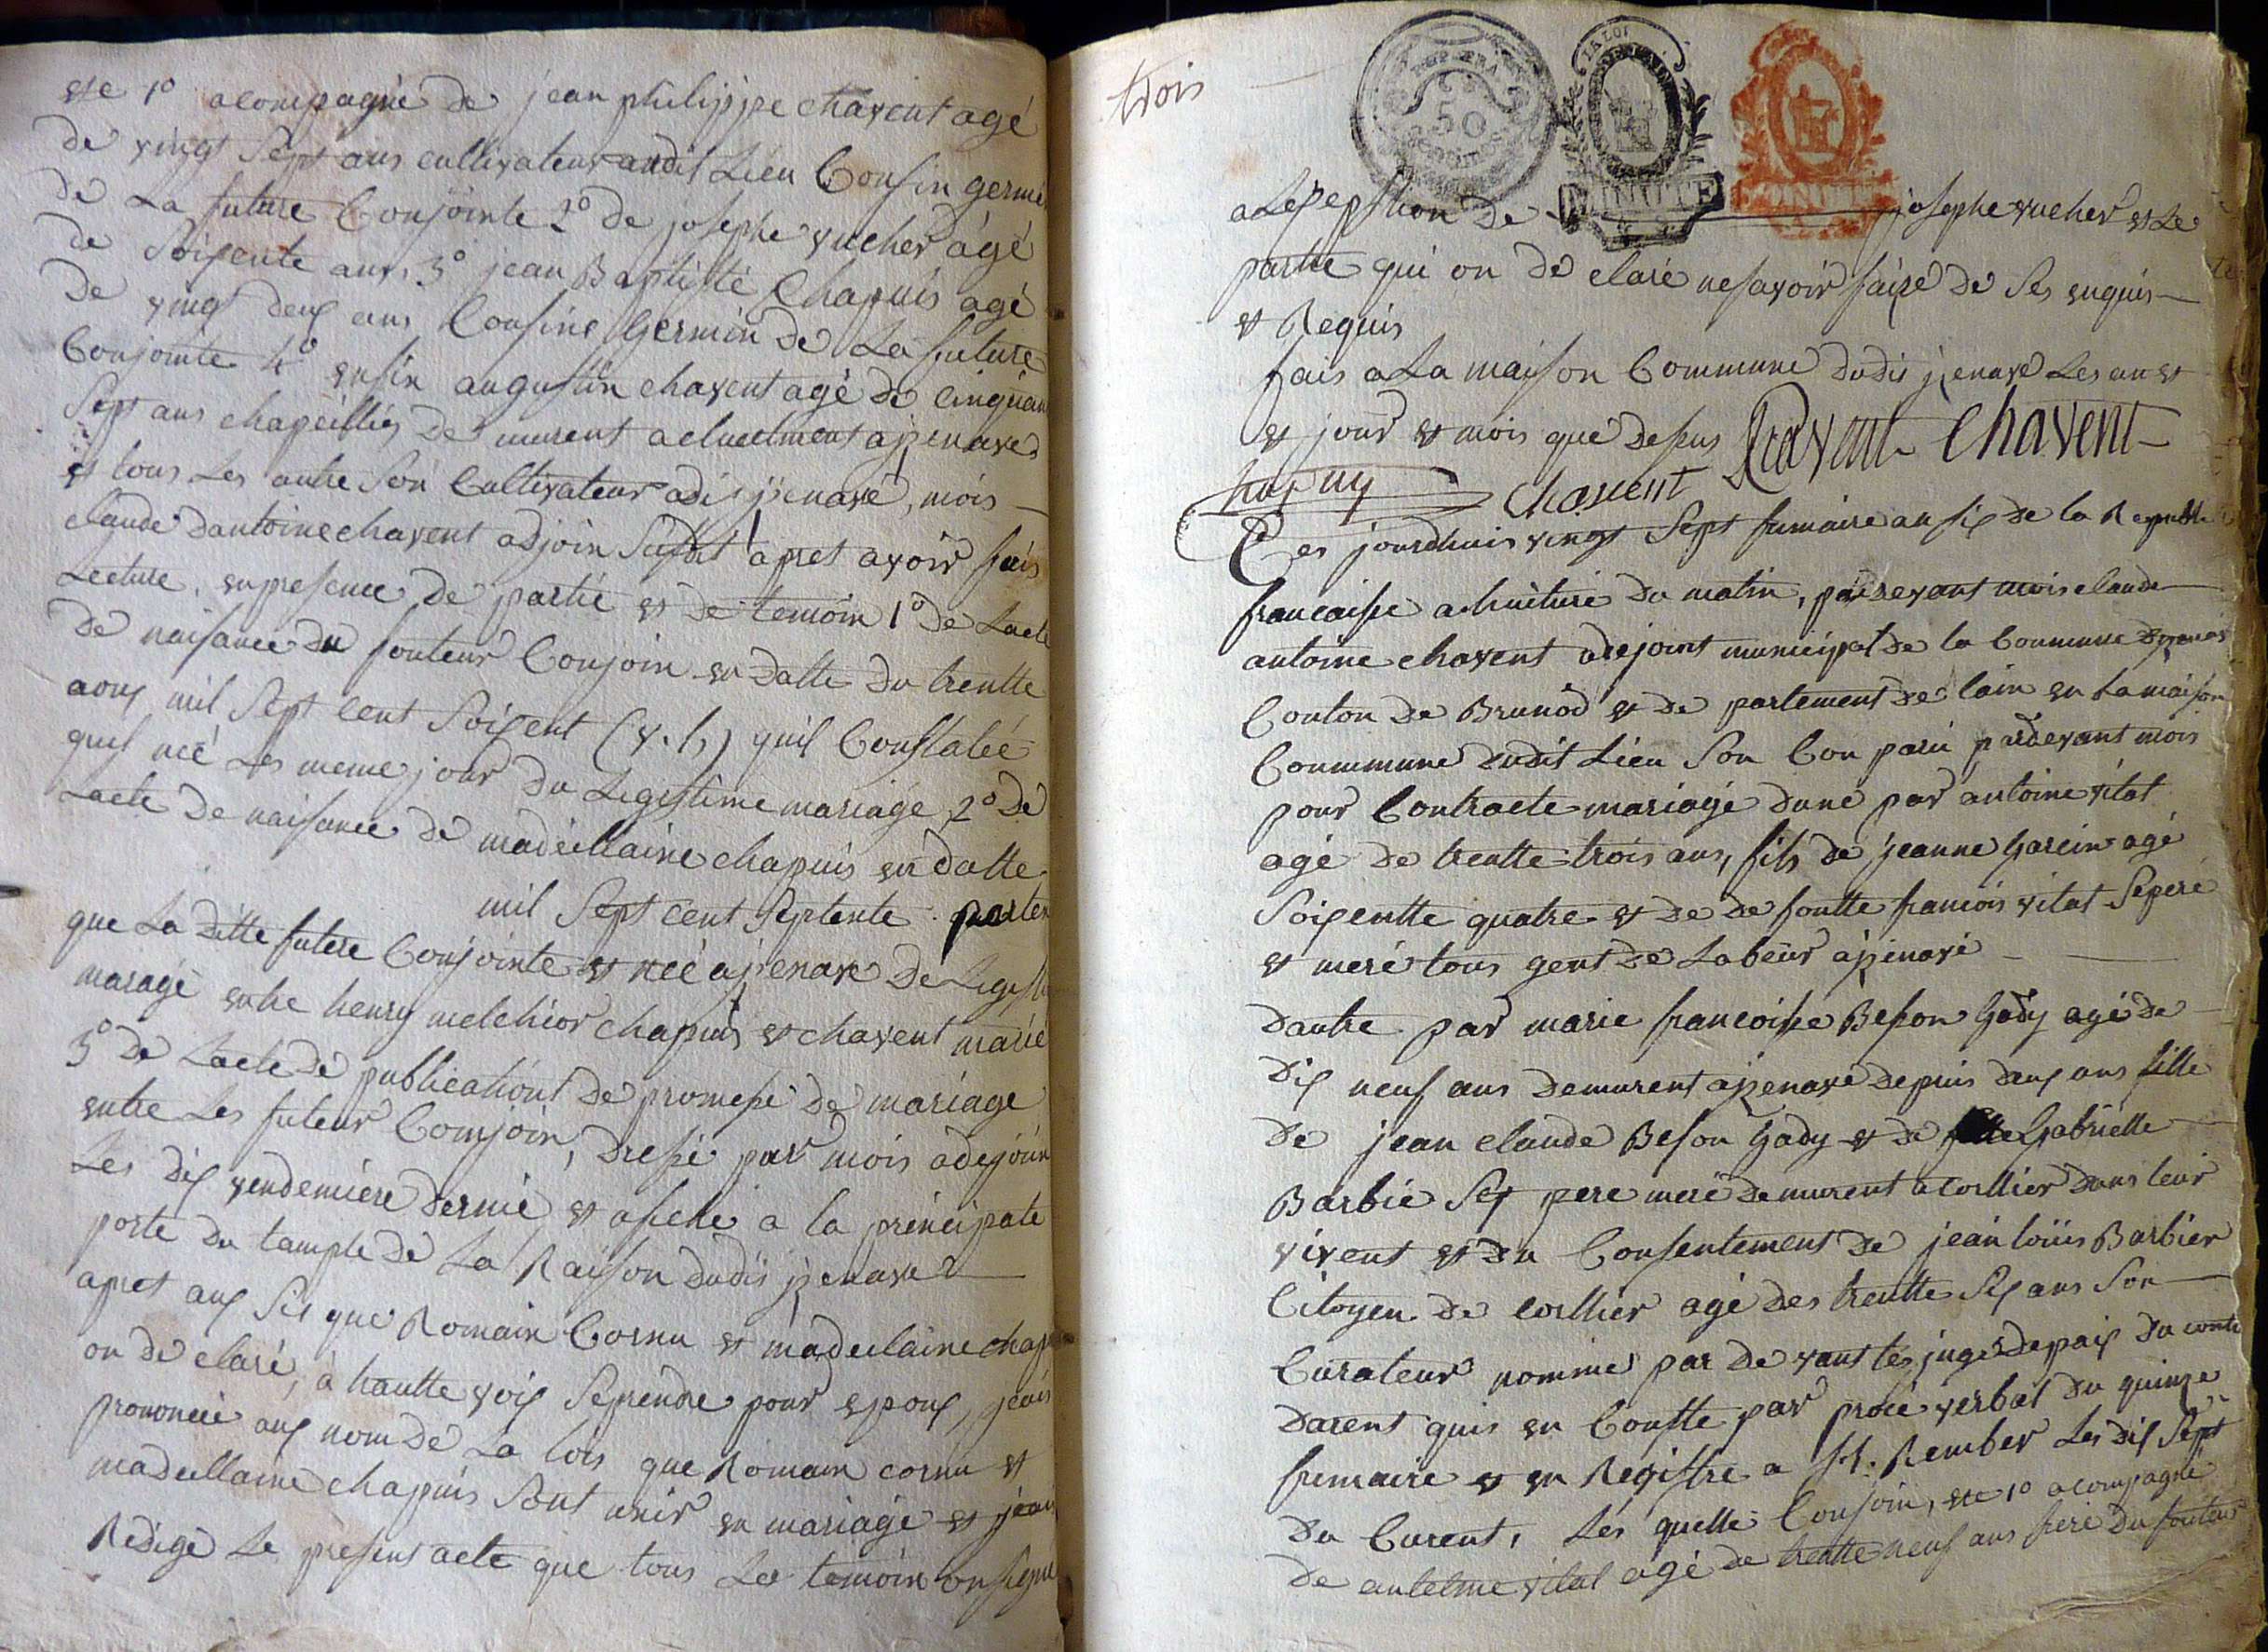 ete 1º acompagné de jean philippe chavent agé
de vingt Sept ans cultivateur audit Lieu Cousin germe
de La future Conjointe 2º de josephe vucher agé
de Soixente ans, 3º jean Baptiste Chapuis agé
de vingt deux ans Cousine Germin de La future
Conjointe 4º enfin augustin chavent agé de cinquan
Sept ans chapeillies de murent actuelment a jzenave
et tous Les autre Son Cultivateur adi jzenave, mois
claude dantoine chavent adjoin Sudit apret avoir fais
Lecture, en presence de partie et de temoin 1º de Lacte
de naisance du fouteur Conjoin en datte du trentte
aoux mil Sept cent Soixent (v. s,) quil Constateé
quil neé Les meme jour du Legistime mariage, 2º de
Lacte de naisance de madeillaine chapuis en datte
mil Sept cent Septente porten
que La ditte future Conjointe et neé a jzenave De Legist
mariage entre henry melchior chapuis et chavent marie
3º de Lacte de publications de promese de mariage
entre Les futeur Conjoin, dresse par mois adejoin
Les dix vendemiere dernié et afiché a la principale
porte du tample de La Raison dudis jzenave
apret aux Sis que Romain Cornu et madeilaine chap
on de claré, a hautte voix Se prendre pour epoux, jeais
prononcé aux nom de La lois que Romain cornu et
madeillaine chapuis Sont unir en mariage et jeais
Redigé Le present acte que tous Les temoin on signe
trois
REP. FRA
50
centimes
LA LOI
MINUTE
a Lexepstion de josephe vucher et Le
partie qui on de claré ne savoir faire de Ses enquis
et Requis
fais a La maison Commune dudis jzenave Les an et
et jour et mois que desus Ravaut Chavent
Dupuy Chavent
Ces jourdhuis vingt Sept frumaire an six de la Republi
francaisse a huiture du matin, pardevant mois claude
antoine chavent adejoint municipal de la Commune dizenave
Conton de Brunod et de partement de lain en La maison
Coummune dudit Lieu Son Con paru pardevant mois
pour Contracte mariage dune par antoine vitat
agé de trentte trois ans, fils de jeanne Garcin agé
Soixentte quatre et de de foutte francois vitat Se pere
et meré tous gent de Labeur a jzenave
dautre par marie francoise Beson Gady agé de
dix neuf ans demurent a jzenave depuis deux ans fille
de jean claude Beson Gady et de Gabrielle
Barbie Sex pere meré demurent a Corllier dans leur
vivent et du Consentement de jean louis Barbier
Citoyen de Corllier agé des trentte Six ans Son
Curateur nommé par de vant les juge de paix du conto
darent quis en Coustte par procé verbal du quinze
frumaire et en Registre a St. Rember Les dix Sept
du Curent, Les quelle Conjoin, ete 1º acompagné
de antelme vitat agé de trentte neuf ans frere du fouteur